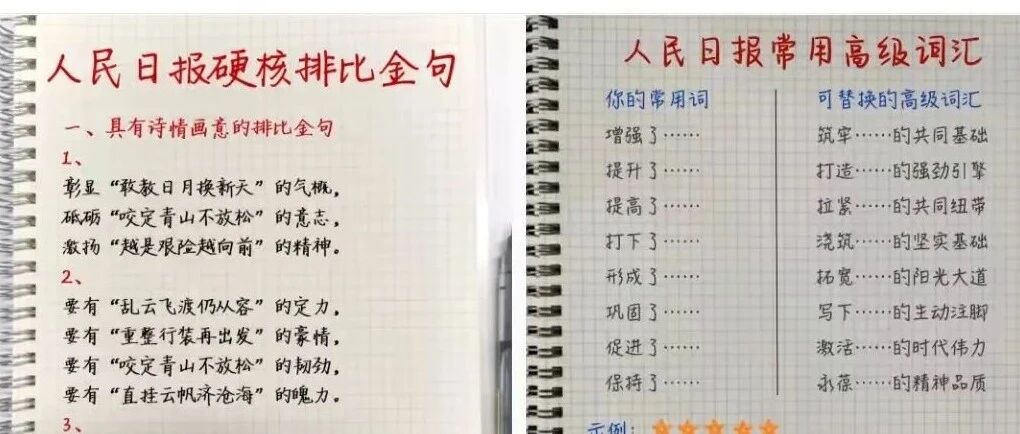 人民日报硬核排比金句
一、具有诗情画意的排比金句
1、
彰显“敢教日月换新天”的气概，
砥砺“咬定青山不放松”的意志，
激扬“越是艰险越向前”的精神。
2、
要有“乱云飞渡仍从容”的定力，
要有“重整行装再出发”的豪情，
要有“咬定青山不放松”的韧劲，
要有“直挂云帆济沧海”的魄力。
3、
人民日报常用高级词汇
你的常用词 可替换的高级词汇
增强了…… 筑牢……的共同基础
提升了…… 打造……的强劲引擎
提高了…… 拉紧……的共同纽带
打下了…… 浇筑……的坚实基础
形成了…… 拓宽……的阳光大道
巩固了…… 写下……的生动注脚
促进了…… 激活……的时代伟力
保持了…… 永葆……的精神品质
示例：